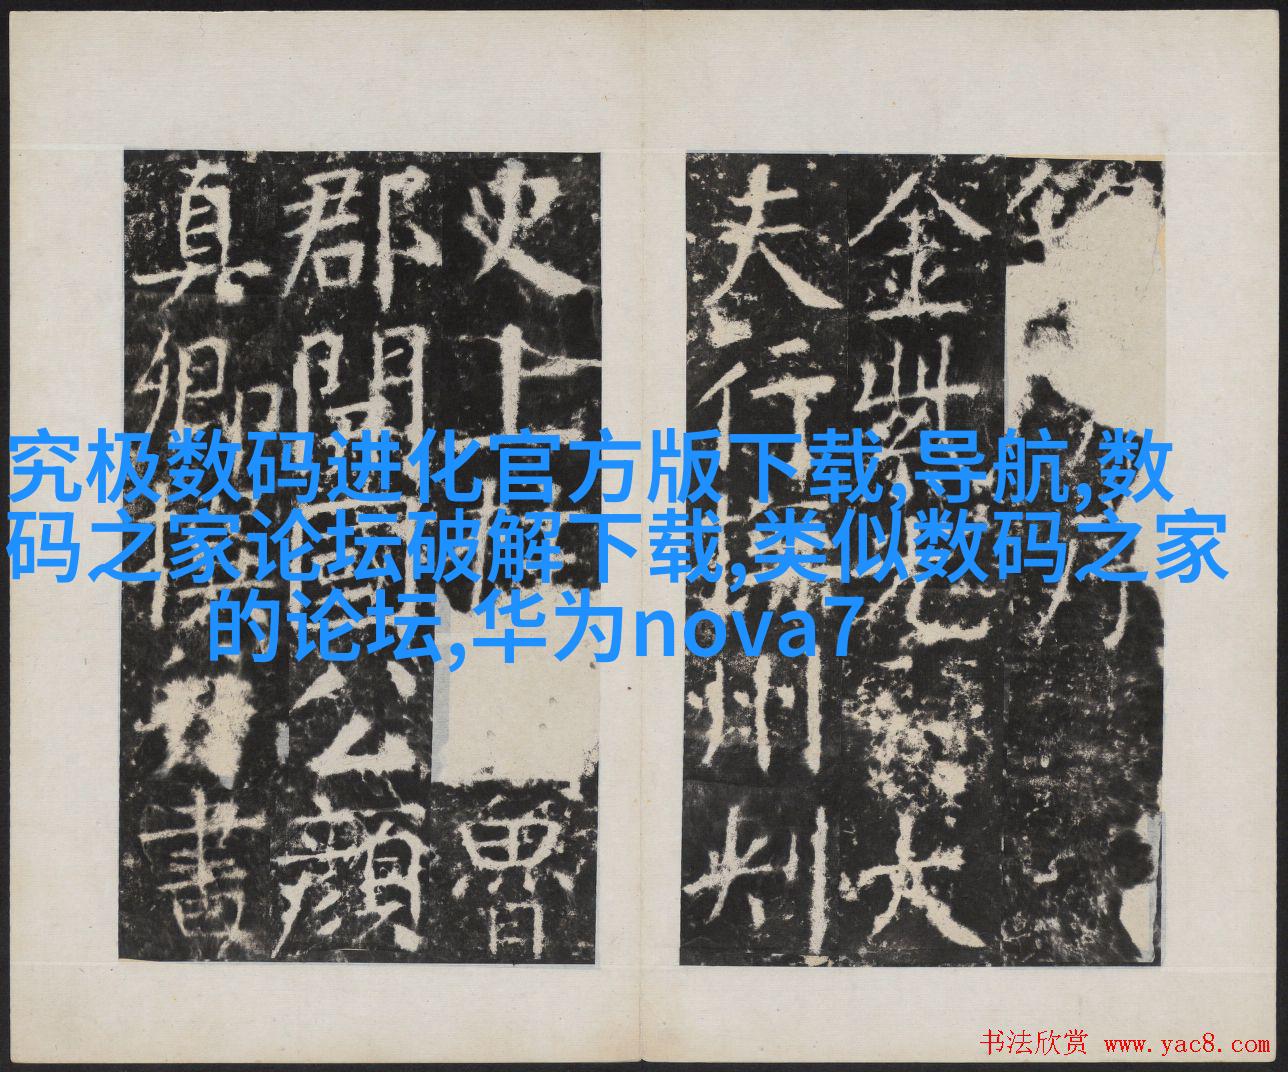 金紫光大
夫行撫州刺
史上柱國魯
郡開國公顏
真卿撰并書
究极数码进化官方版下载,导航,数
码之家论坛破解下载,类似数码之家
的论坛,华为nova7
书法欣赏 www.yac8.com